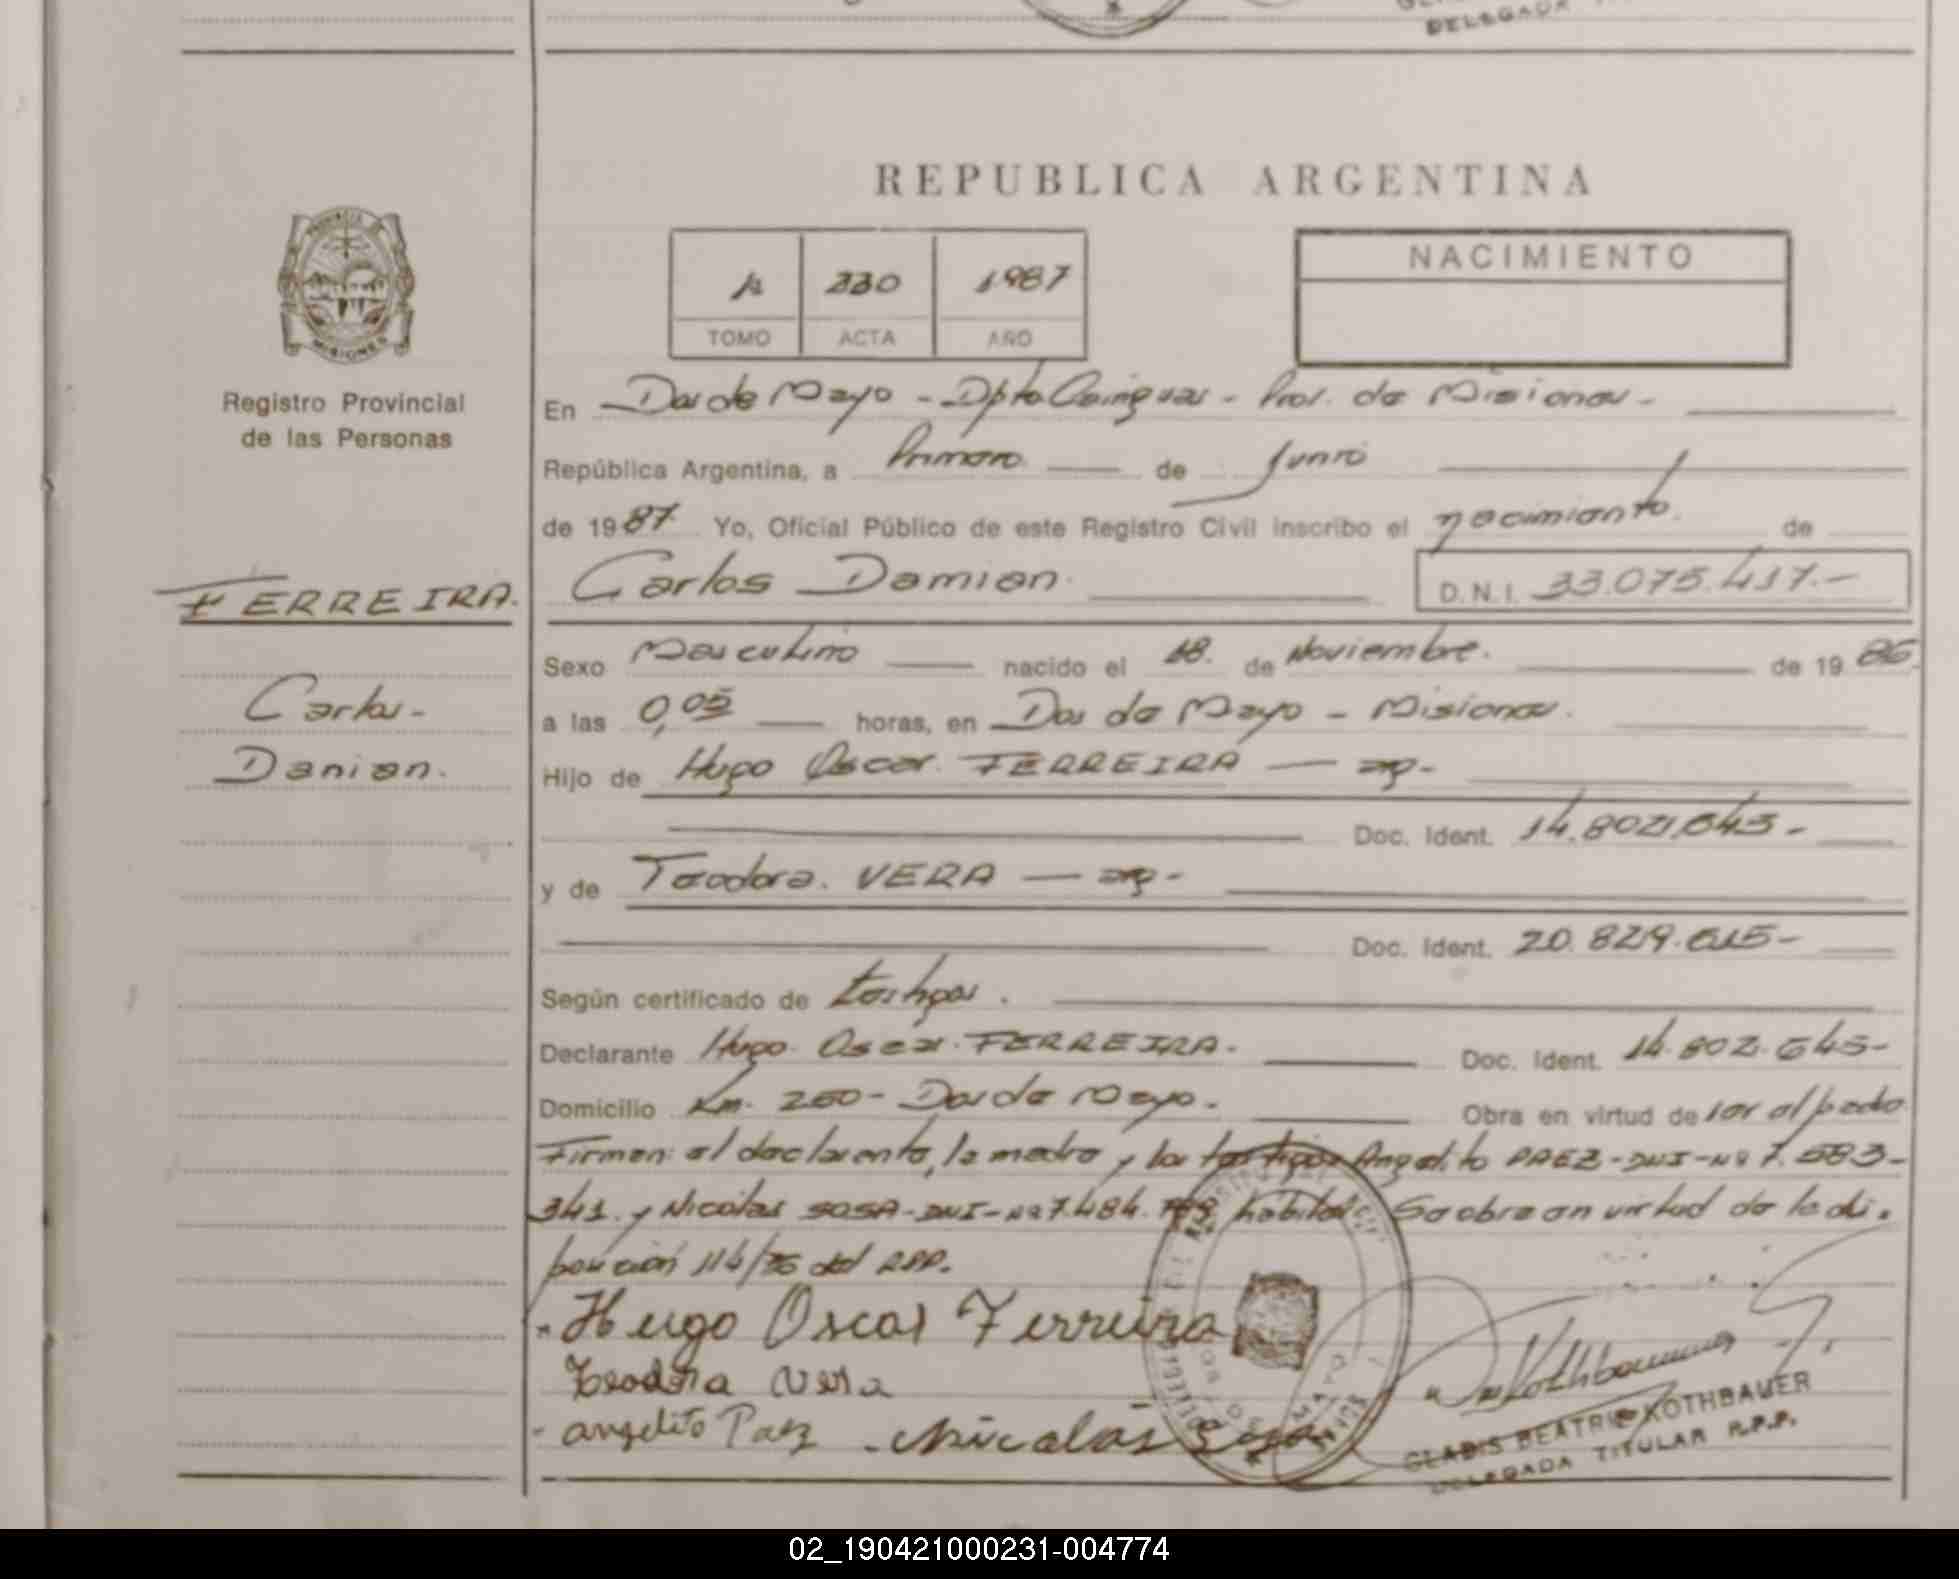 DELEGADA
REPUBLICA ARGENTINA
PROVINCIA DE
MISIONES
Registro Provincial
de las Personas
330 1987
TOMO ACTA AÑO
NACIMIENTO
En Dos de Mayo - Dpto. Cainguas - Prov. de Misiones -
República Argentina, a Primero de Junio
de 1987 Yo, Oficial Público de este Registro Civil inscribo el nacimiento. de
FERREIRA.
Carlos Damian. D.N.I. 33.075.417.-
Sexo Masculino nacido el 18. de Noviembre. de 1986.
Carlos-
a las 0,05 horas, en Dos de Mayo - Misiones.
Damian.
Hijo de Hugo Oscar. FERREIRA — arg-
Doc. Ident. 14.802.645-
y de Teodora. VERA — arg-
Doc. Ident. 20.829.615-
Según certificado de testigos.
Declarante Hugo. Oscar. FERREIRA. Doc. Ident. 14.802.645-
Domicilio Km. 250- Dos de Mayo. Obra en virtud de ser el padre
Firman: el declarante, la madre y los testigos Angelito PAEZ-DNI-Nº 7.583-
341. y Nicolas SOSA-DNI-Nº 7.484. habiles Se obra en virtud de la di.
posición 114/76 del RPP.
Hugo Oscar Ferreira
Teodora Vera
angelito Paez - Nicolas Sosa
GLADIS BEATRIZ KOTHBAUER
DELEGADA TITULAR R.P.P.
02_190421000231-004774